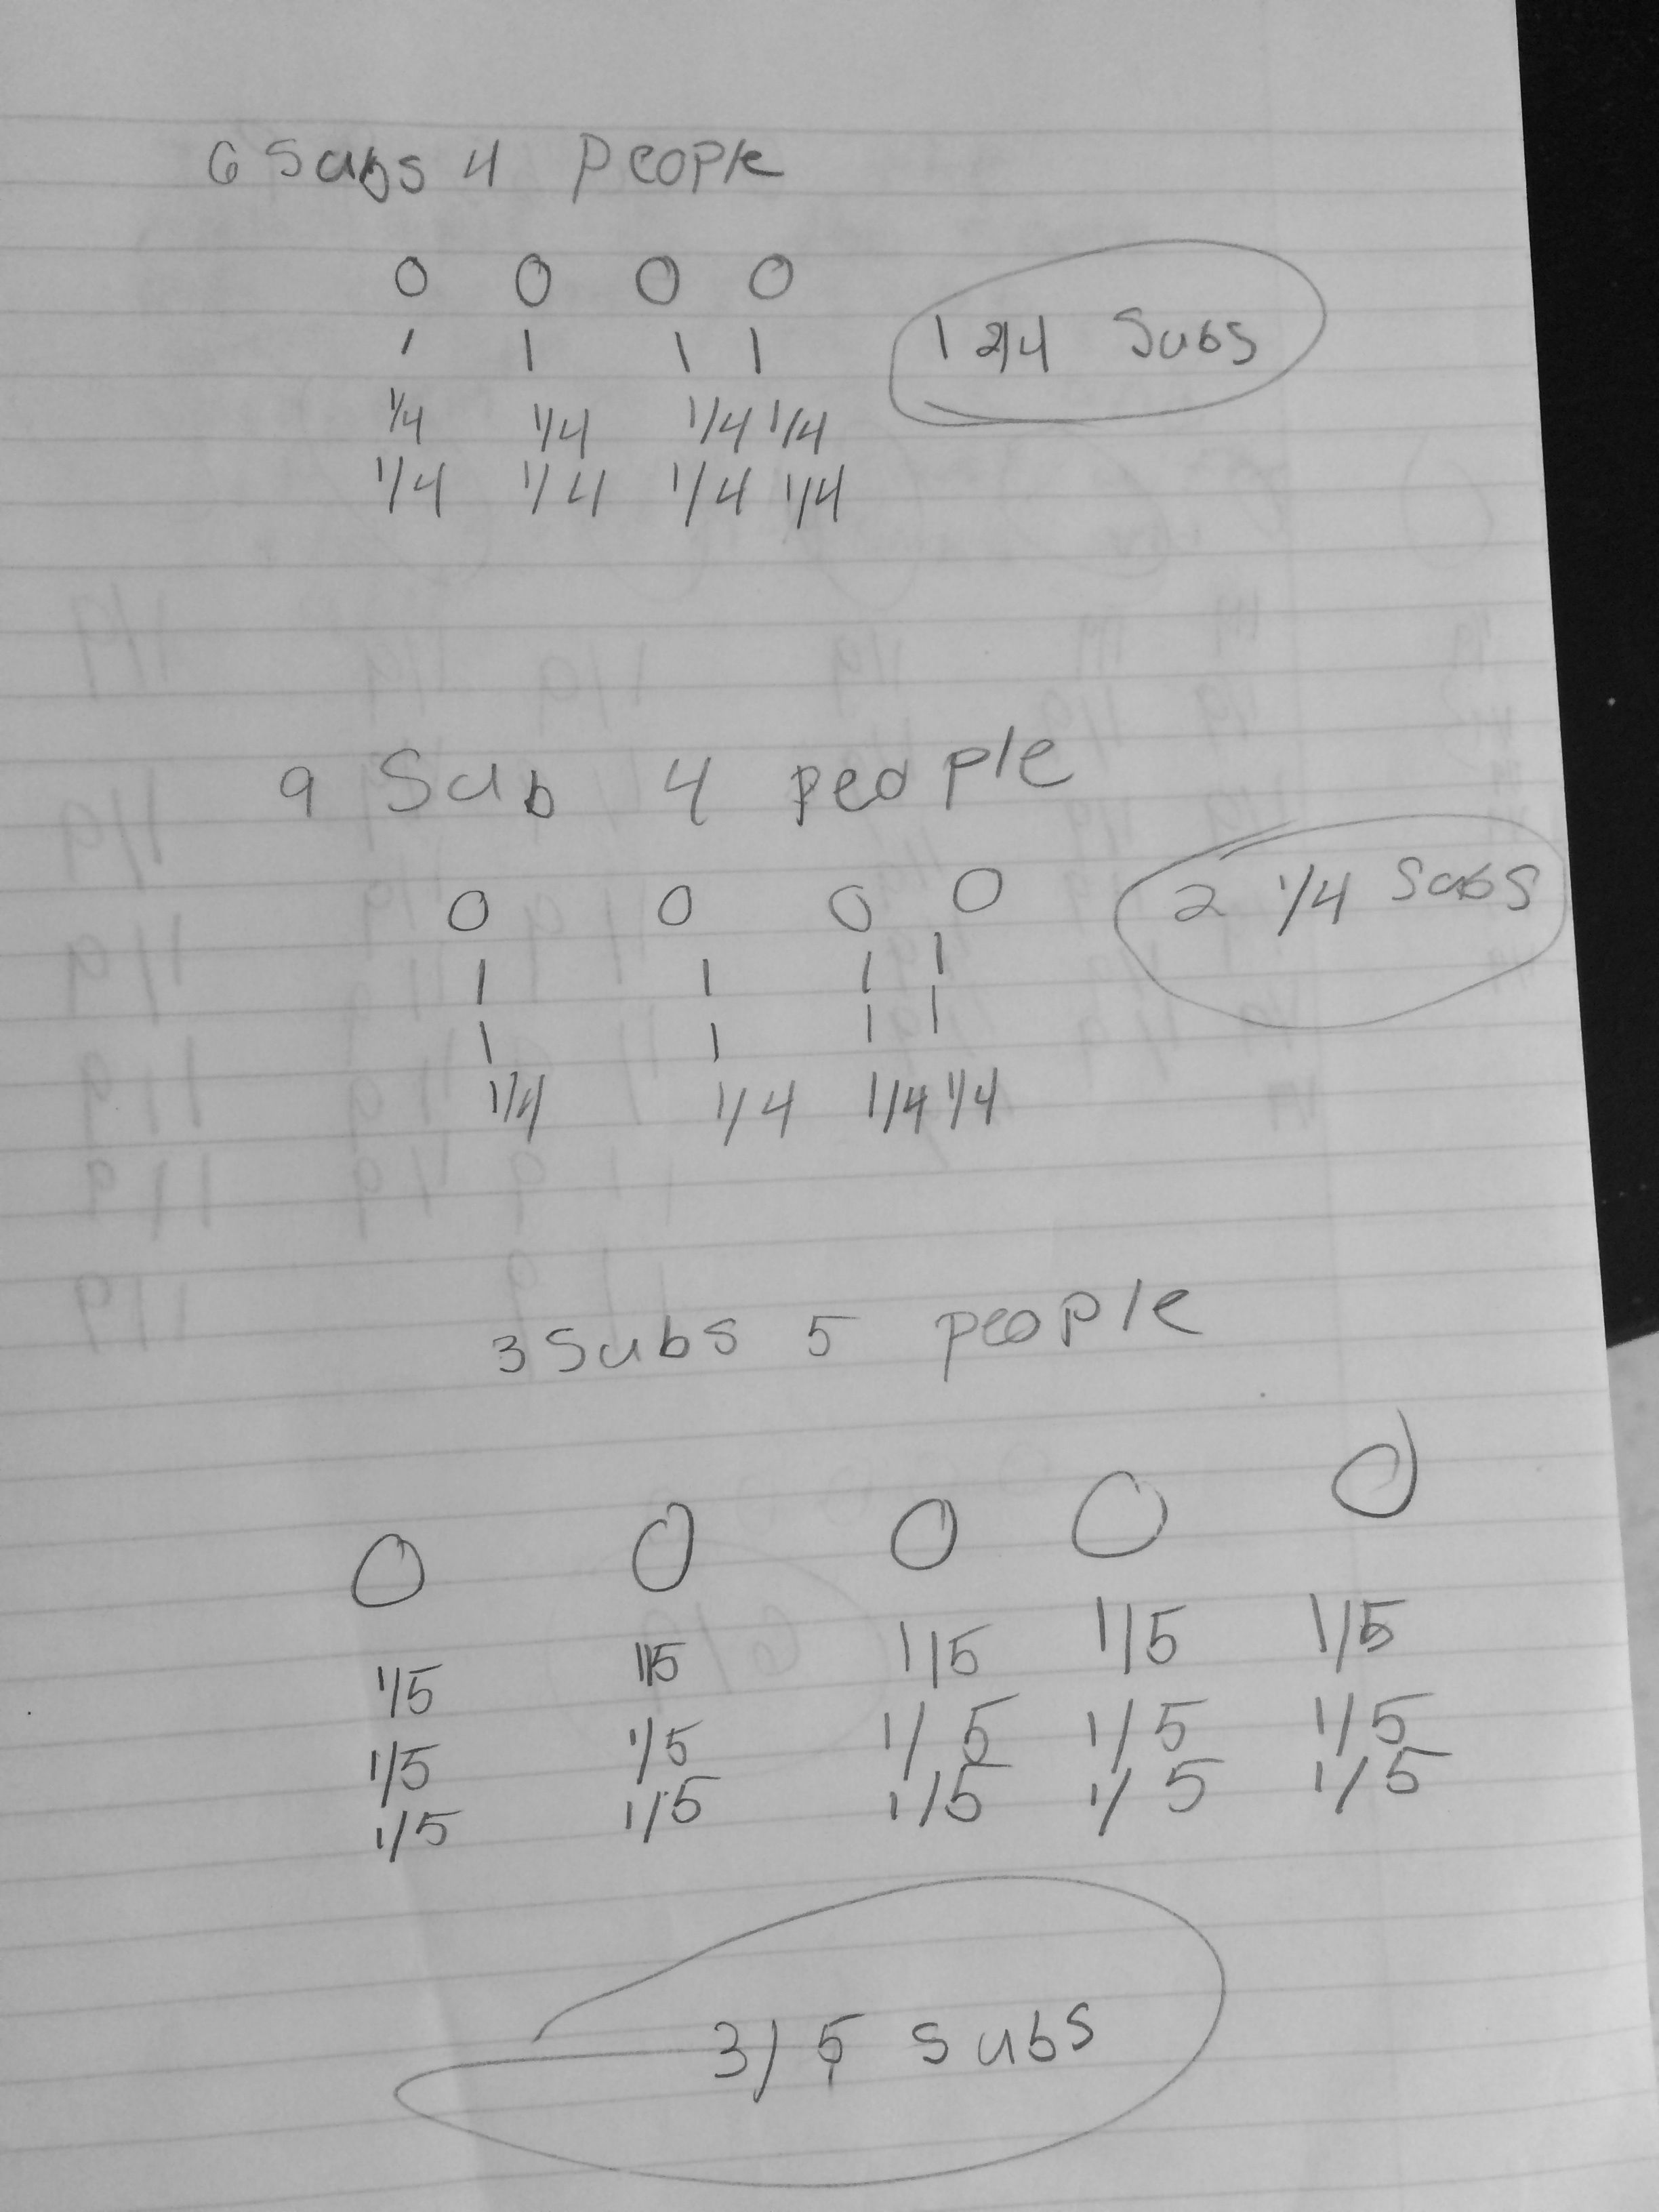 6 Subs 4 people
O O O O
1 1 1 1
1/4 1/4 1/4 1/4
1/4 1/4 1/4 1/4
1 2/4 Subs
9 Sub 4 people
O O O O
1 1 1 1
1 1 1 1
1/4 1/4 1/4 1/4
2 1/4 Subs
3 Subs 5 people
O O O O O
1/5 1/5 1/5 1/5 1/5
1/5 1/5 1/5 1/5 1/5
1/5 1/5 1/5 1/5 1/5
3/5 subs